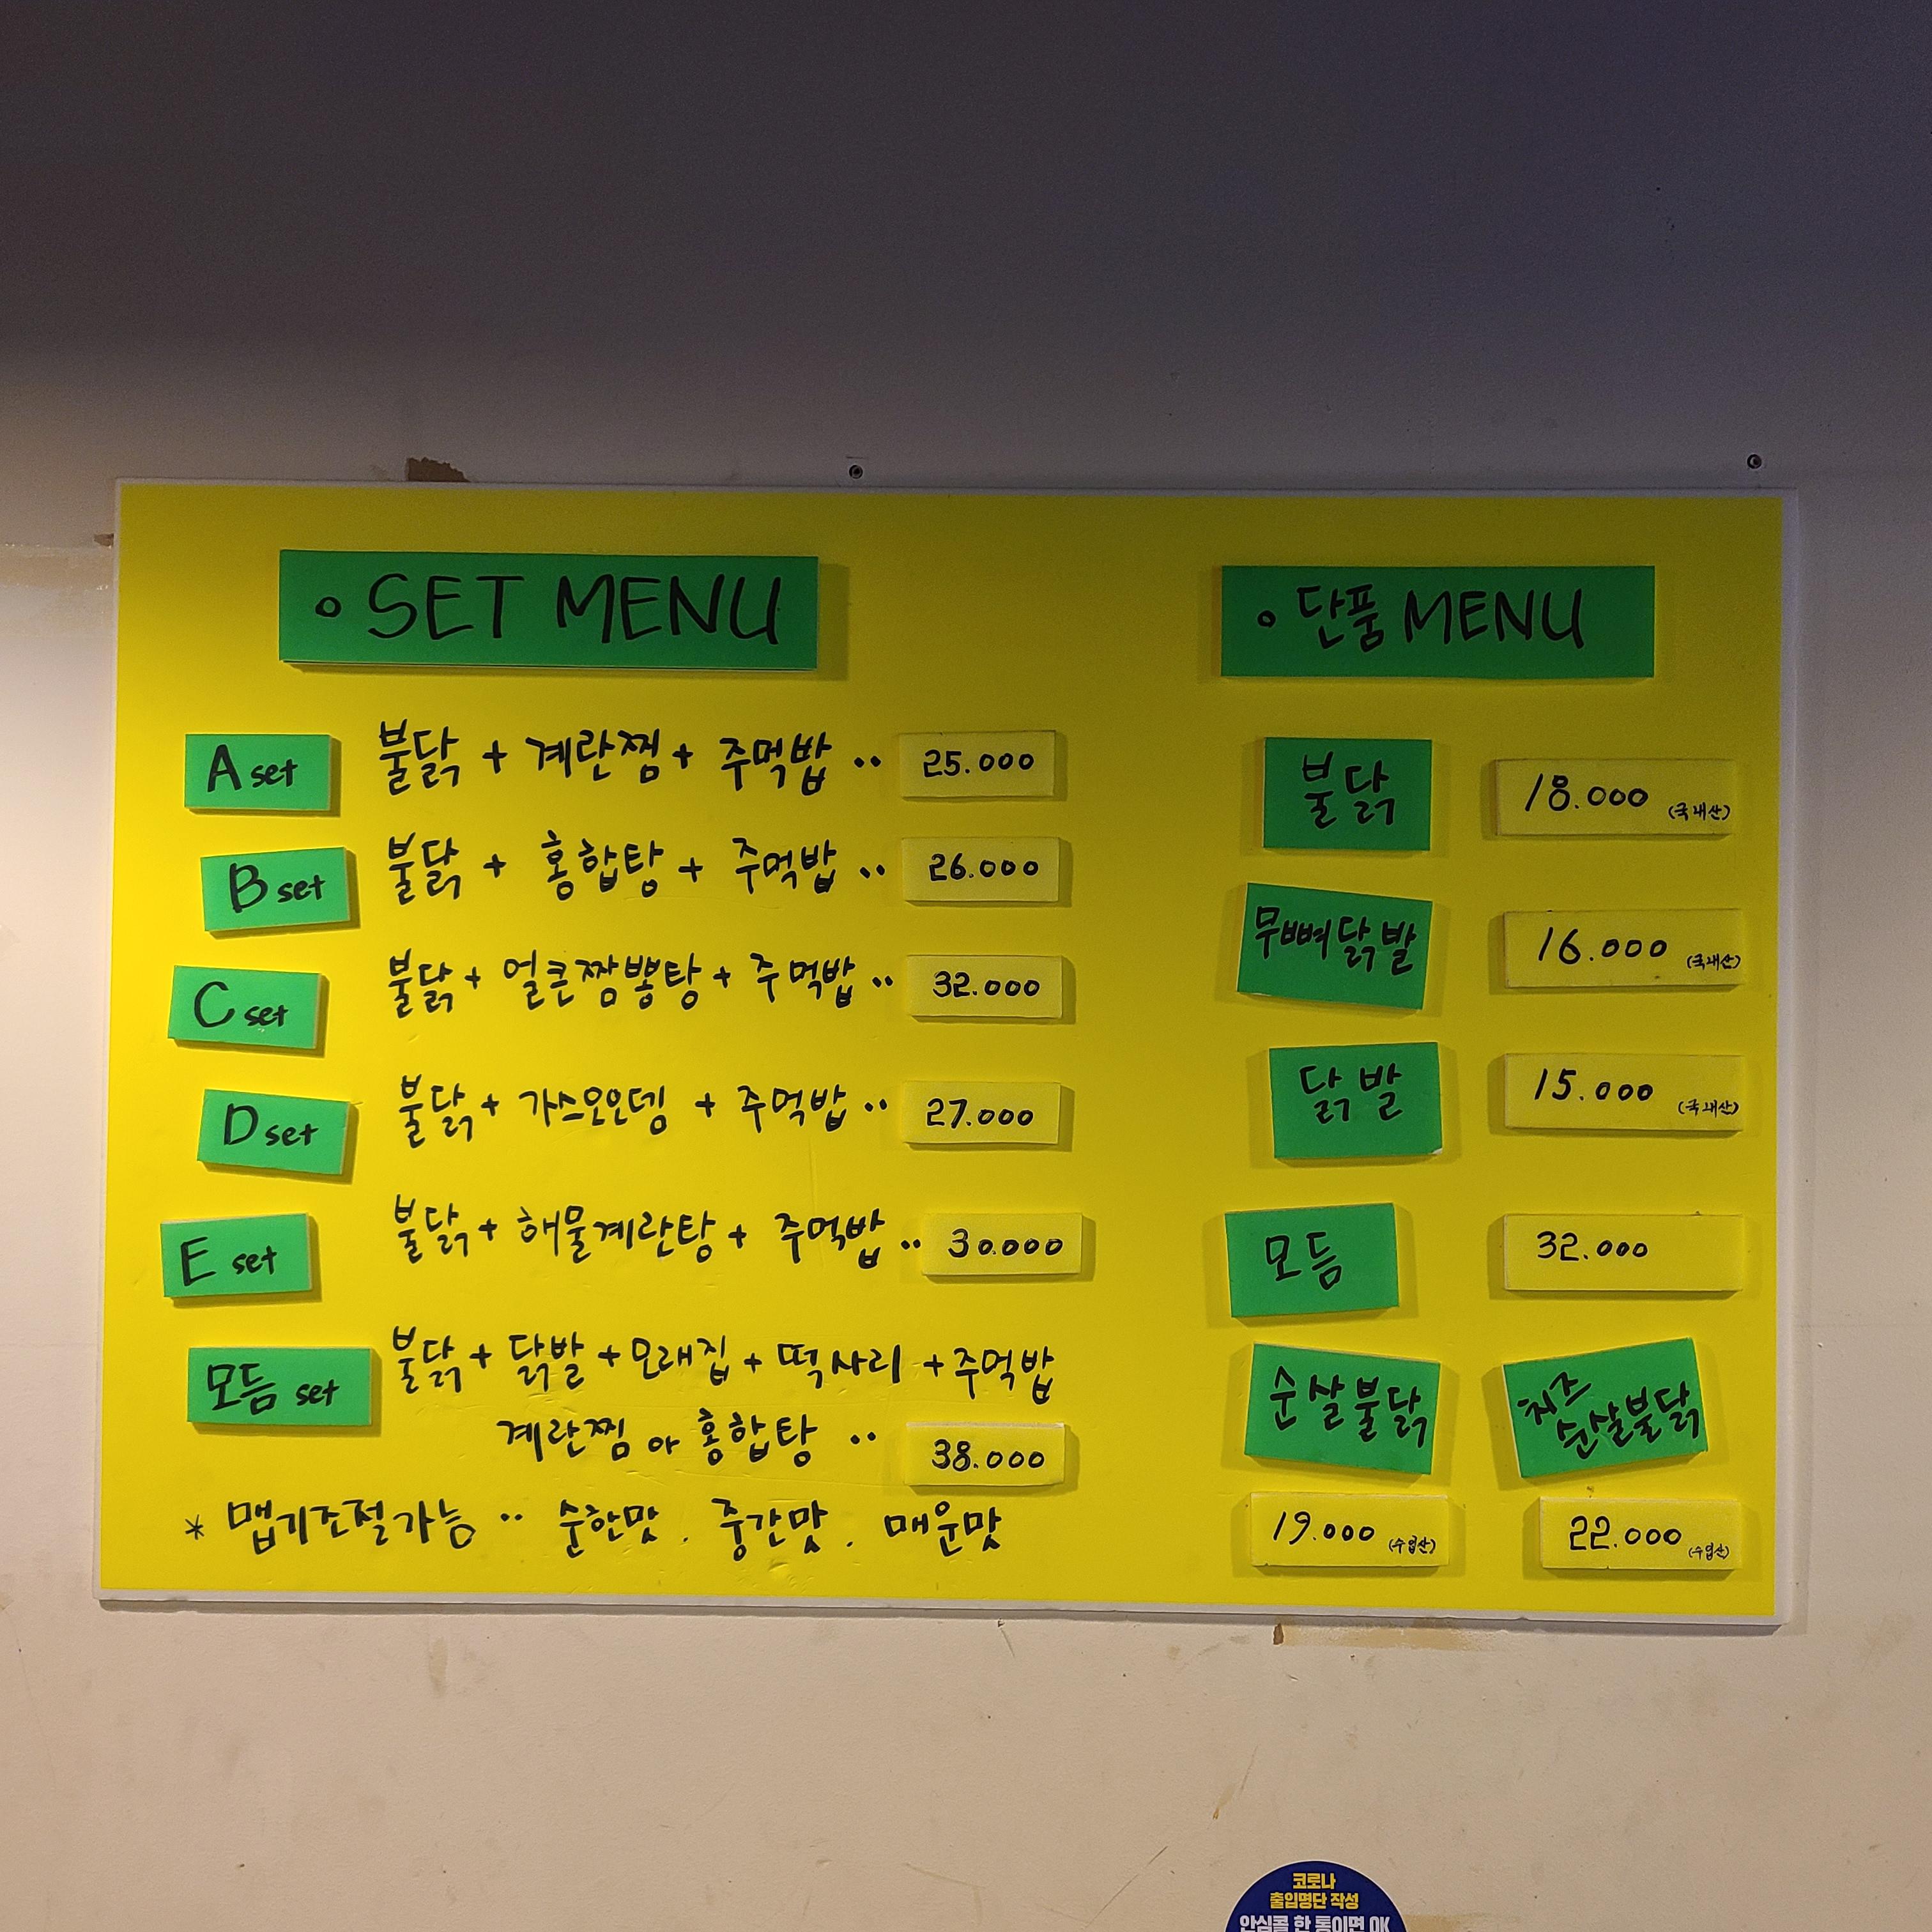 ° SET MENU
A set 불닭 + 계란찜 + 주먹밥 ·· 25.000
B set 불닭 + 홍합탕 + 주먹밥 ·· 26.000
C set 불닭 + 얼큰짬뽕탕 + 주먹밥 ·· 32.000
D set 불닭 + 가쓰오오뎅 + 주먹밥 ·· 27.000
E set 불닭 + 해물계란탕 + 주먹밥 ·· 30.000
모듬 set 불닭 + 닭발 + 모래집 + 떡사리 + 주먹밥
계란찜 or 홍합탕 ·· 38.000
* 맵기조절가능 ·· 순한맛 . 중간맛 . 매운맛
° 단품 MENU
불닭 18.000 (국내산)
무뼈닭발 16.000 (국내산)
닭발 15.000 (국내산)
모듬 32.000
순살불닭
19.000 (수입산)
치즈
순살불닭
22.000 (수입산)
코로나
출입명단 작성
안심콜 한 통이면 OK